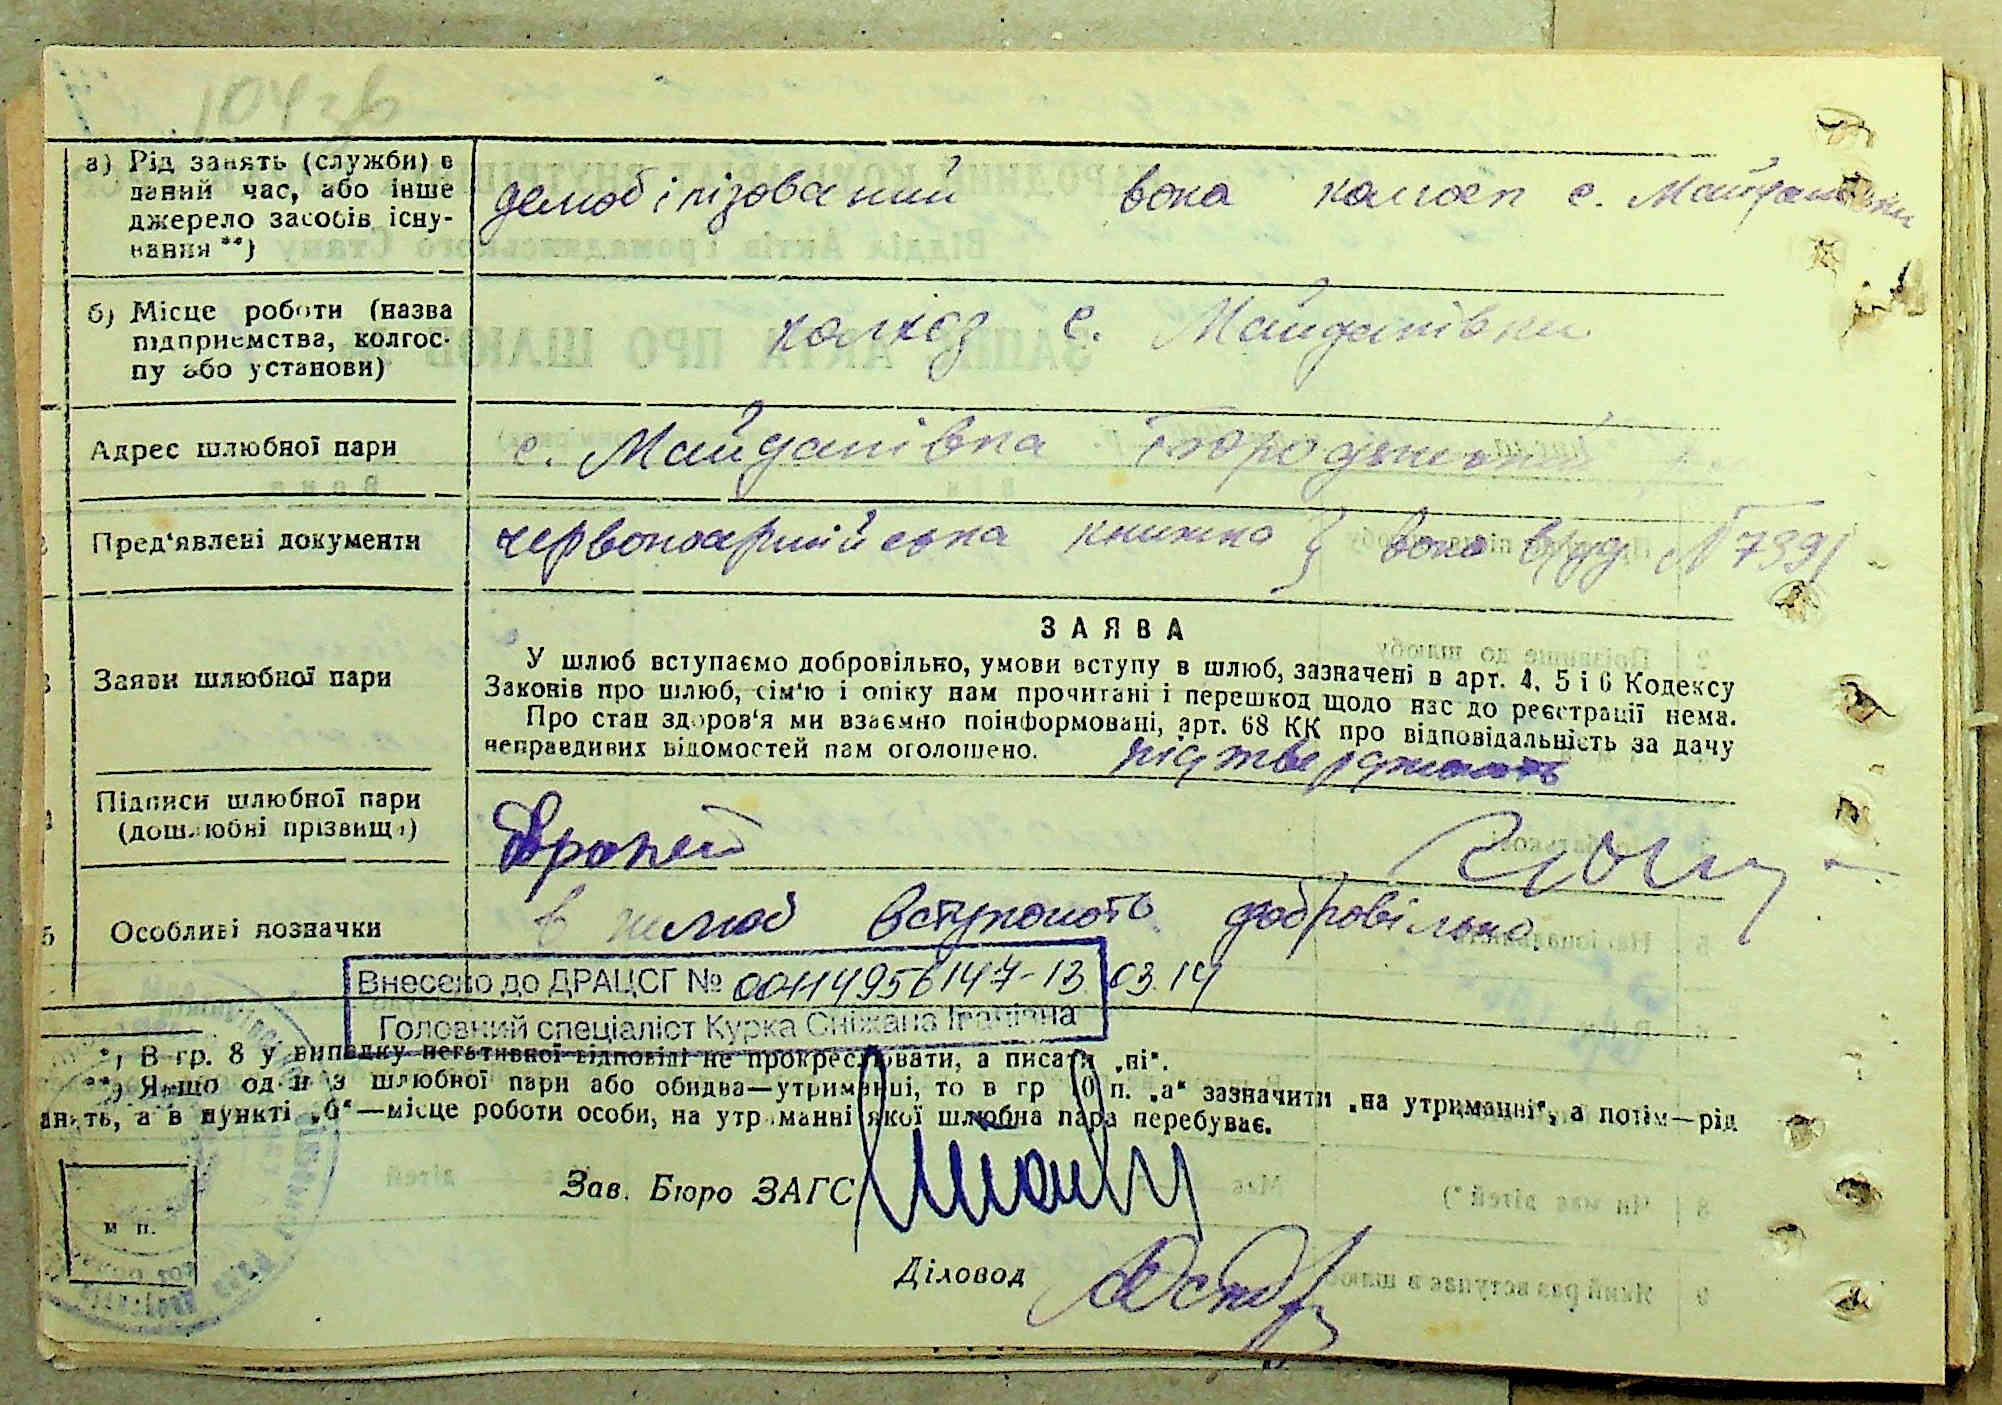 104 зв
а) Рід занять (служби) в
даний час, або інше
джерело засобів існу-
вання **)
демобілізований вона колгосп с. Майданівки
б) Місце роботи (назва
підприємства, колгос-
пу або установи)
колхоз с. Майданівки
Адрес шлюбної пари
с. Майданівка
Пред'явлені документи
червоноармійська книжка вона в/уд. N 7391
ЗАЯВА
Заяви шлюбної пари
У шлюб вступаємо добровільно, умови вступу в шлюб, зазначені в арт. 4, 5 і 6 Кодексу
Законів про шлюб, сім'ю і опіку нам прочитані і перешкод щодо нас до реєстрації нема.
Про стан здоров'я ми взаємно поінформовані, арт. 68 КК про відповідальність за дачу
неправдивих відомостей нам оголошено. підтверджають
Підписи шлюбної пари
(дошлюбні прізвища)
5 Особливі позначки
в шлюб вступають добровільно.
Внесено до ДРАЦСГ № 00114956147-13.03.14
Головний спеціаліст Курка Сніжана Іванівна
*) В гр. 8 у випадку негативної відповіді не прокреслювати, а писати „ні“.
**) Якщо один із шлюбної пари або обидва—утриманці, то в гр 10 п. „а“ зазначити „на утриманні“, а потім—рід
анять, а в пункті „б“—місце роботи особи, на утриманні якої шлюбна пара перебуває.
Зав. Бюро ЗАГС
м п.
Діловод